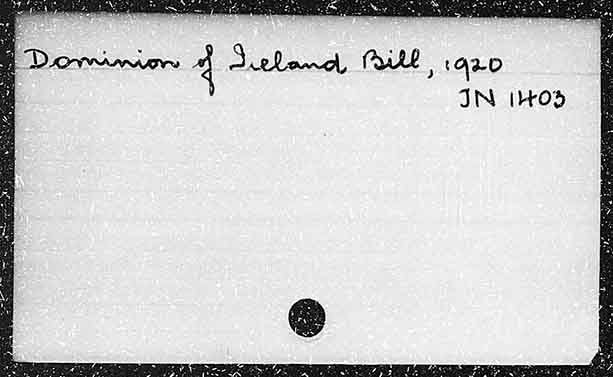 Dominion of Ireland Bill, 1920
JN 1403